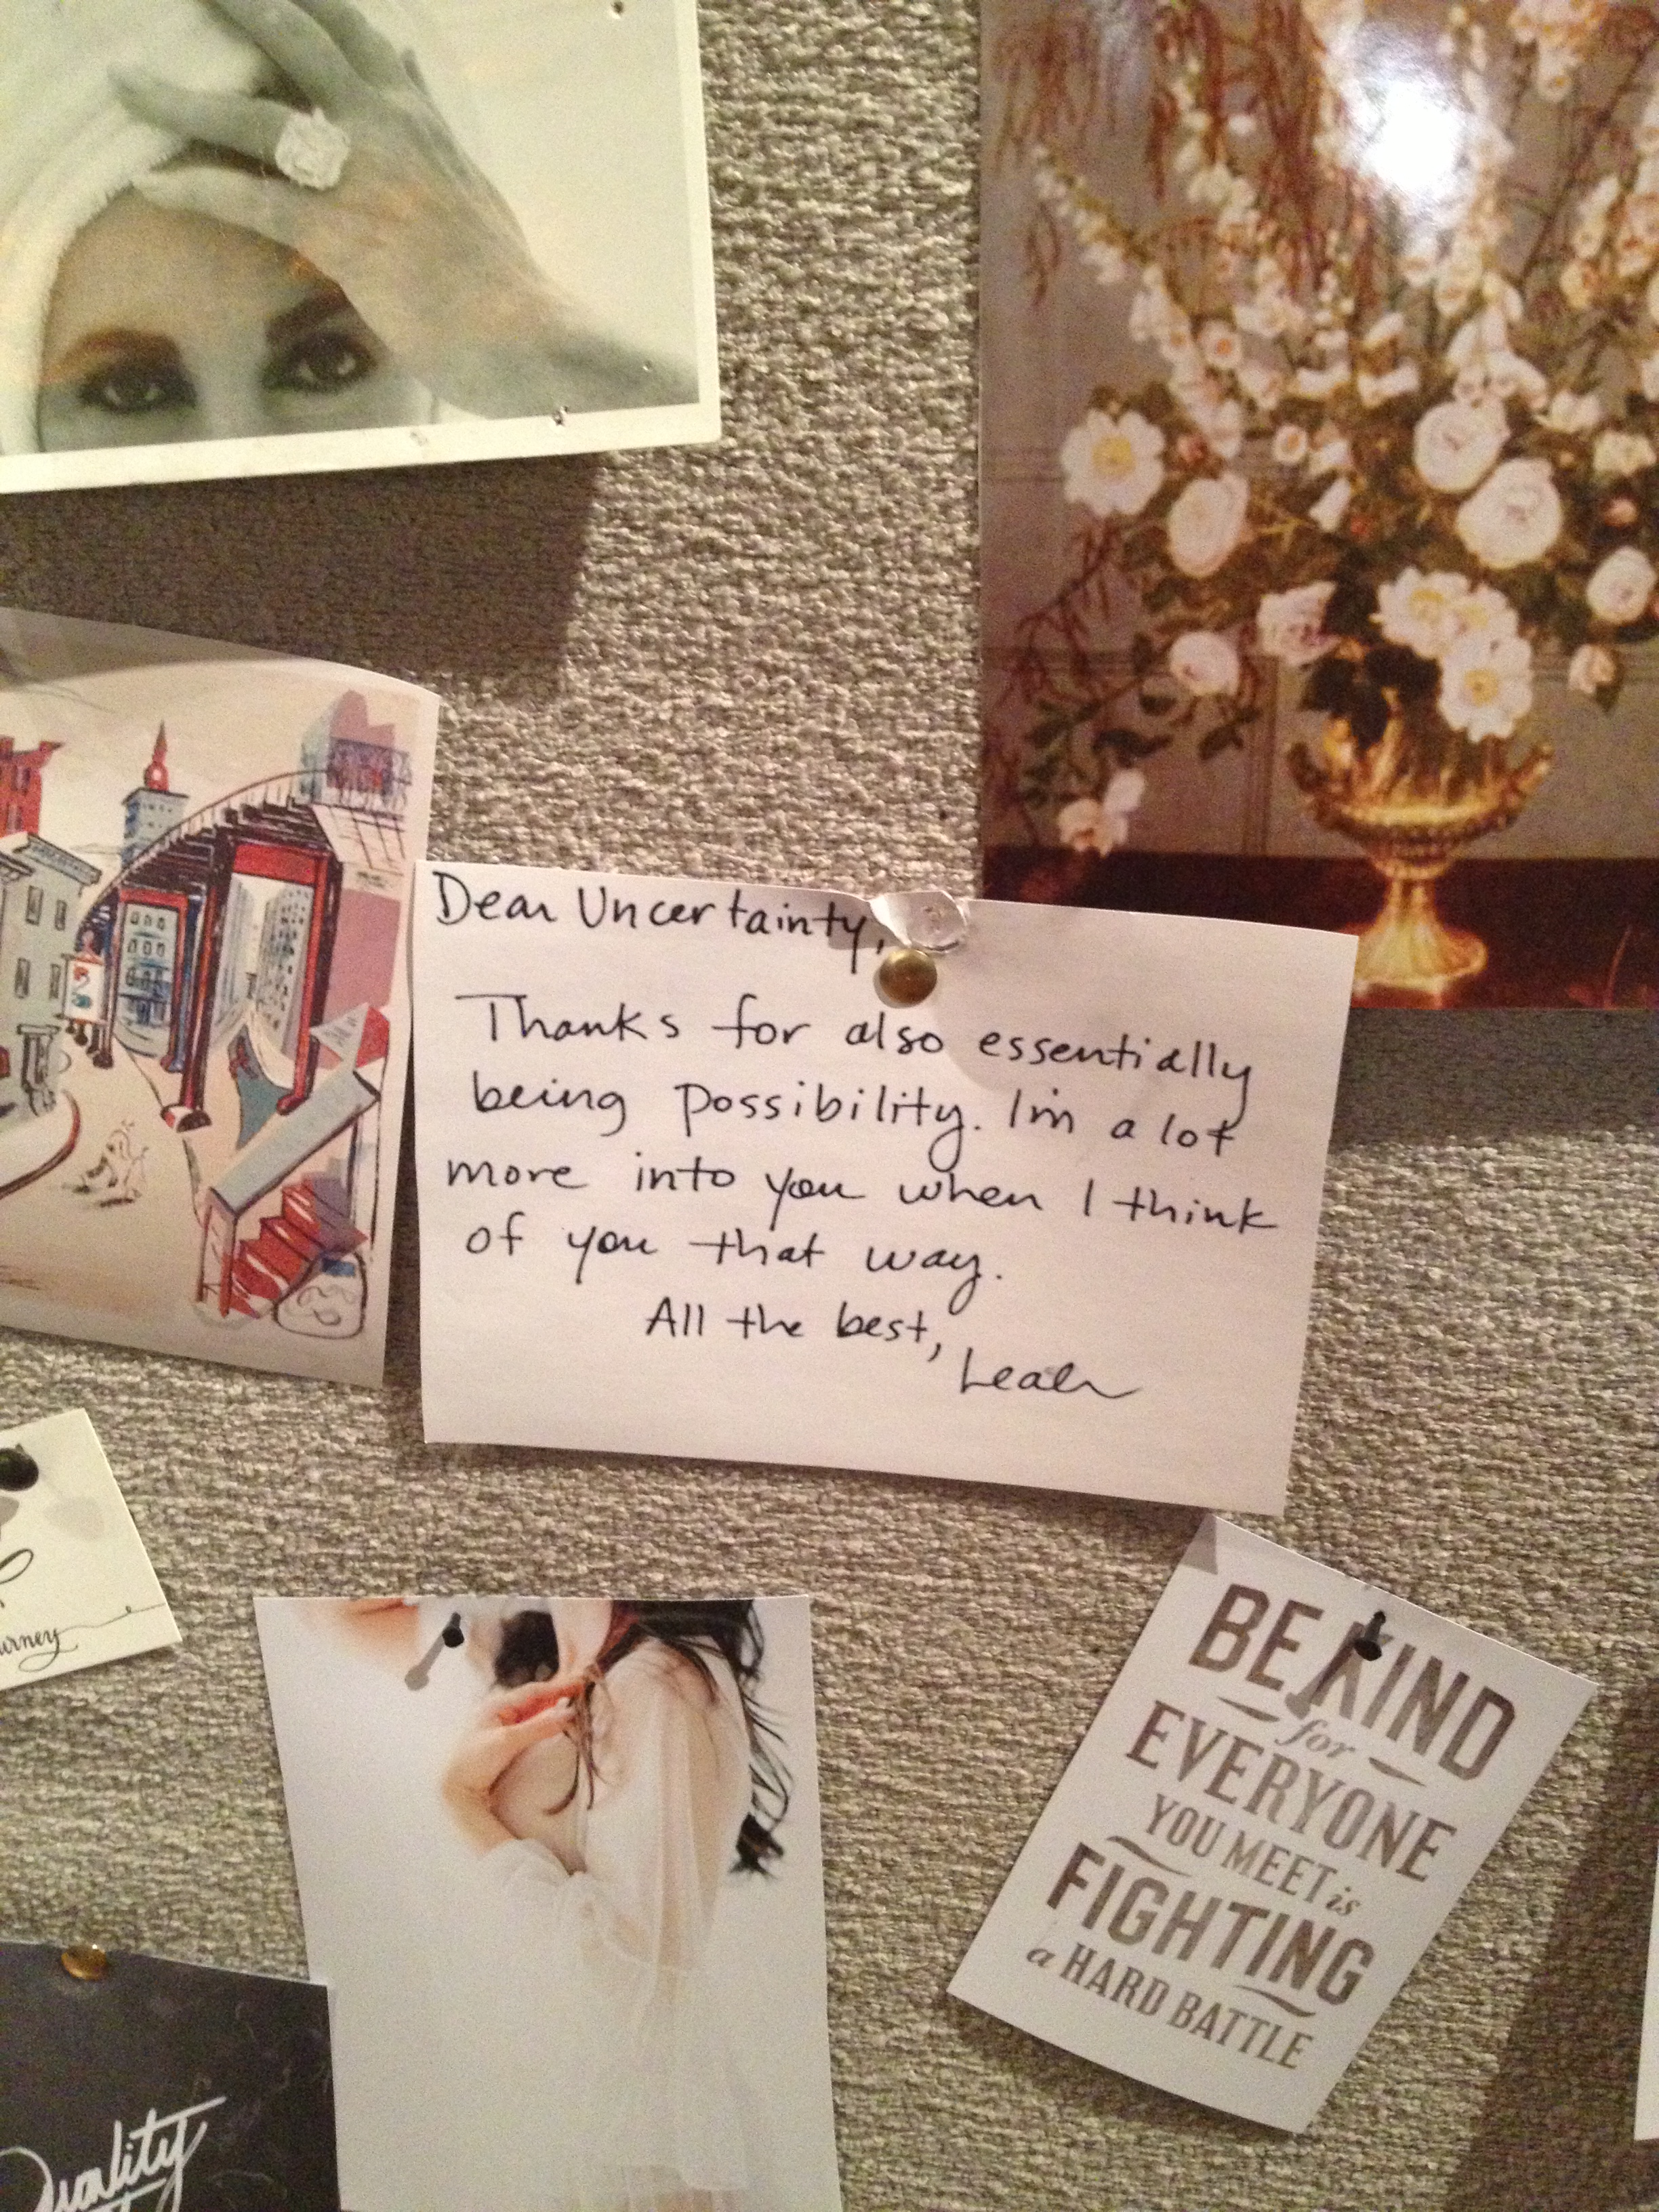 Dear Uncertainty,
Thanks for also essentially
being possibility. I'm a lot
more into you when I think
of you that way.
All the best,
Leah
BE KIND
for
EVERYONE
YOU MEET is
FIGHTING
a HARD BATTLE
Quality